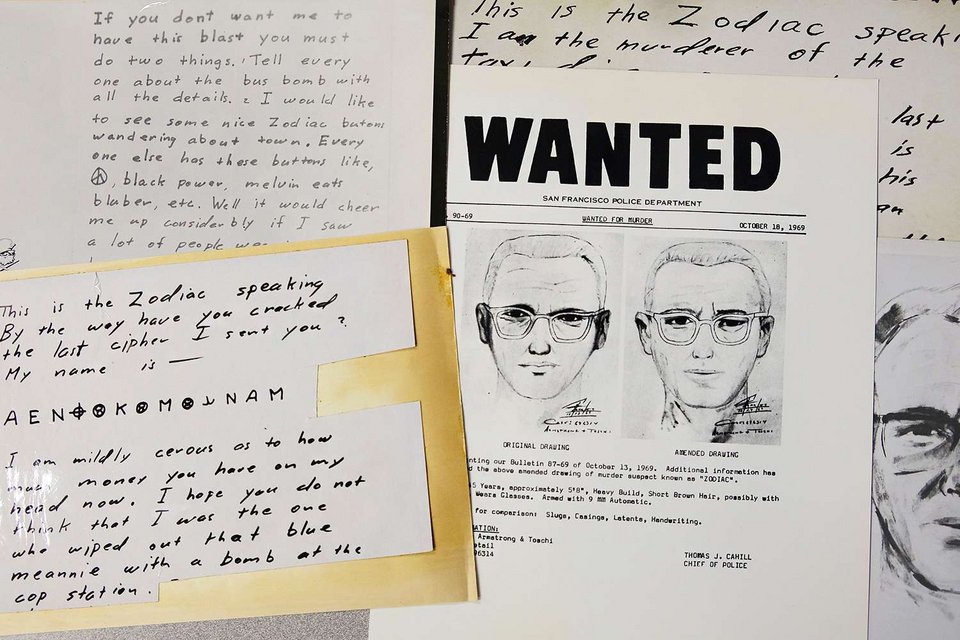 If you dont want me to
have this blast you must
do two things. Tell every
one about the bus bomb with
all the details. 2 I would like
to see some nice Zodiac butons
wandering about town. Every
one else has these buttons like,
☮, black power, melvin eats
bluber, etc. Well it would cheer
me up considerbly if I saw
a lot of people
This is the Zodiac speaking
By the way have you cracked
the last cipher I sent you?
My name is —
AEN⊕⊗K⊗M⊗⅃NAM
I am mildly cerous as to how
much money you have on my
head now. I hope you do not
think that I was the one
who wiped out that blue
meannie with a bomb at the
cop station.
This is the Zodiac speaki
I am the murderer of the
last
is
his
an
WANTED
SAN FRANCISCO POLICE DEPARTMENT
90-69 WANTED FOR MURDER OCTOBER 18, 1969
ORIGINAL DRAWING AMENDED DRAWING
nting our Bulletin 87-69 of October 13, 1969. Additional information has
d the above amended drawing of murder suspect known as "ZODIAC".
5 Years, approximately 5'8", Heavy Build, Short Brown Hair, possibly with
Wears Glasses. Armed with 9 MM Automatic.
for comparison: Slugs, Casings, Latents, Handwriting.
ATION:
Armstrong & Toschi
etail
96314
THOMAS J. CAHILL
CHIEF OF POLICE